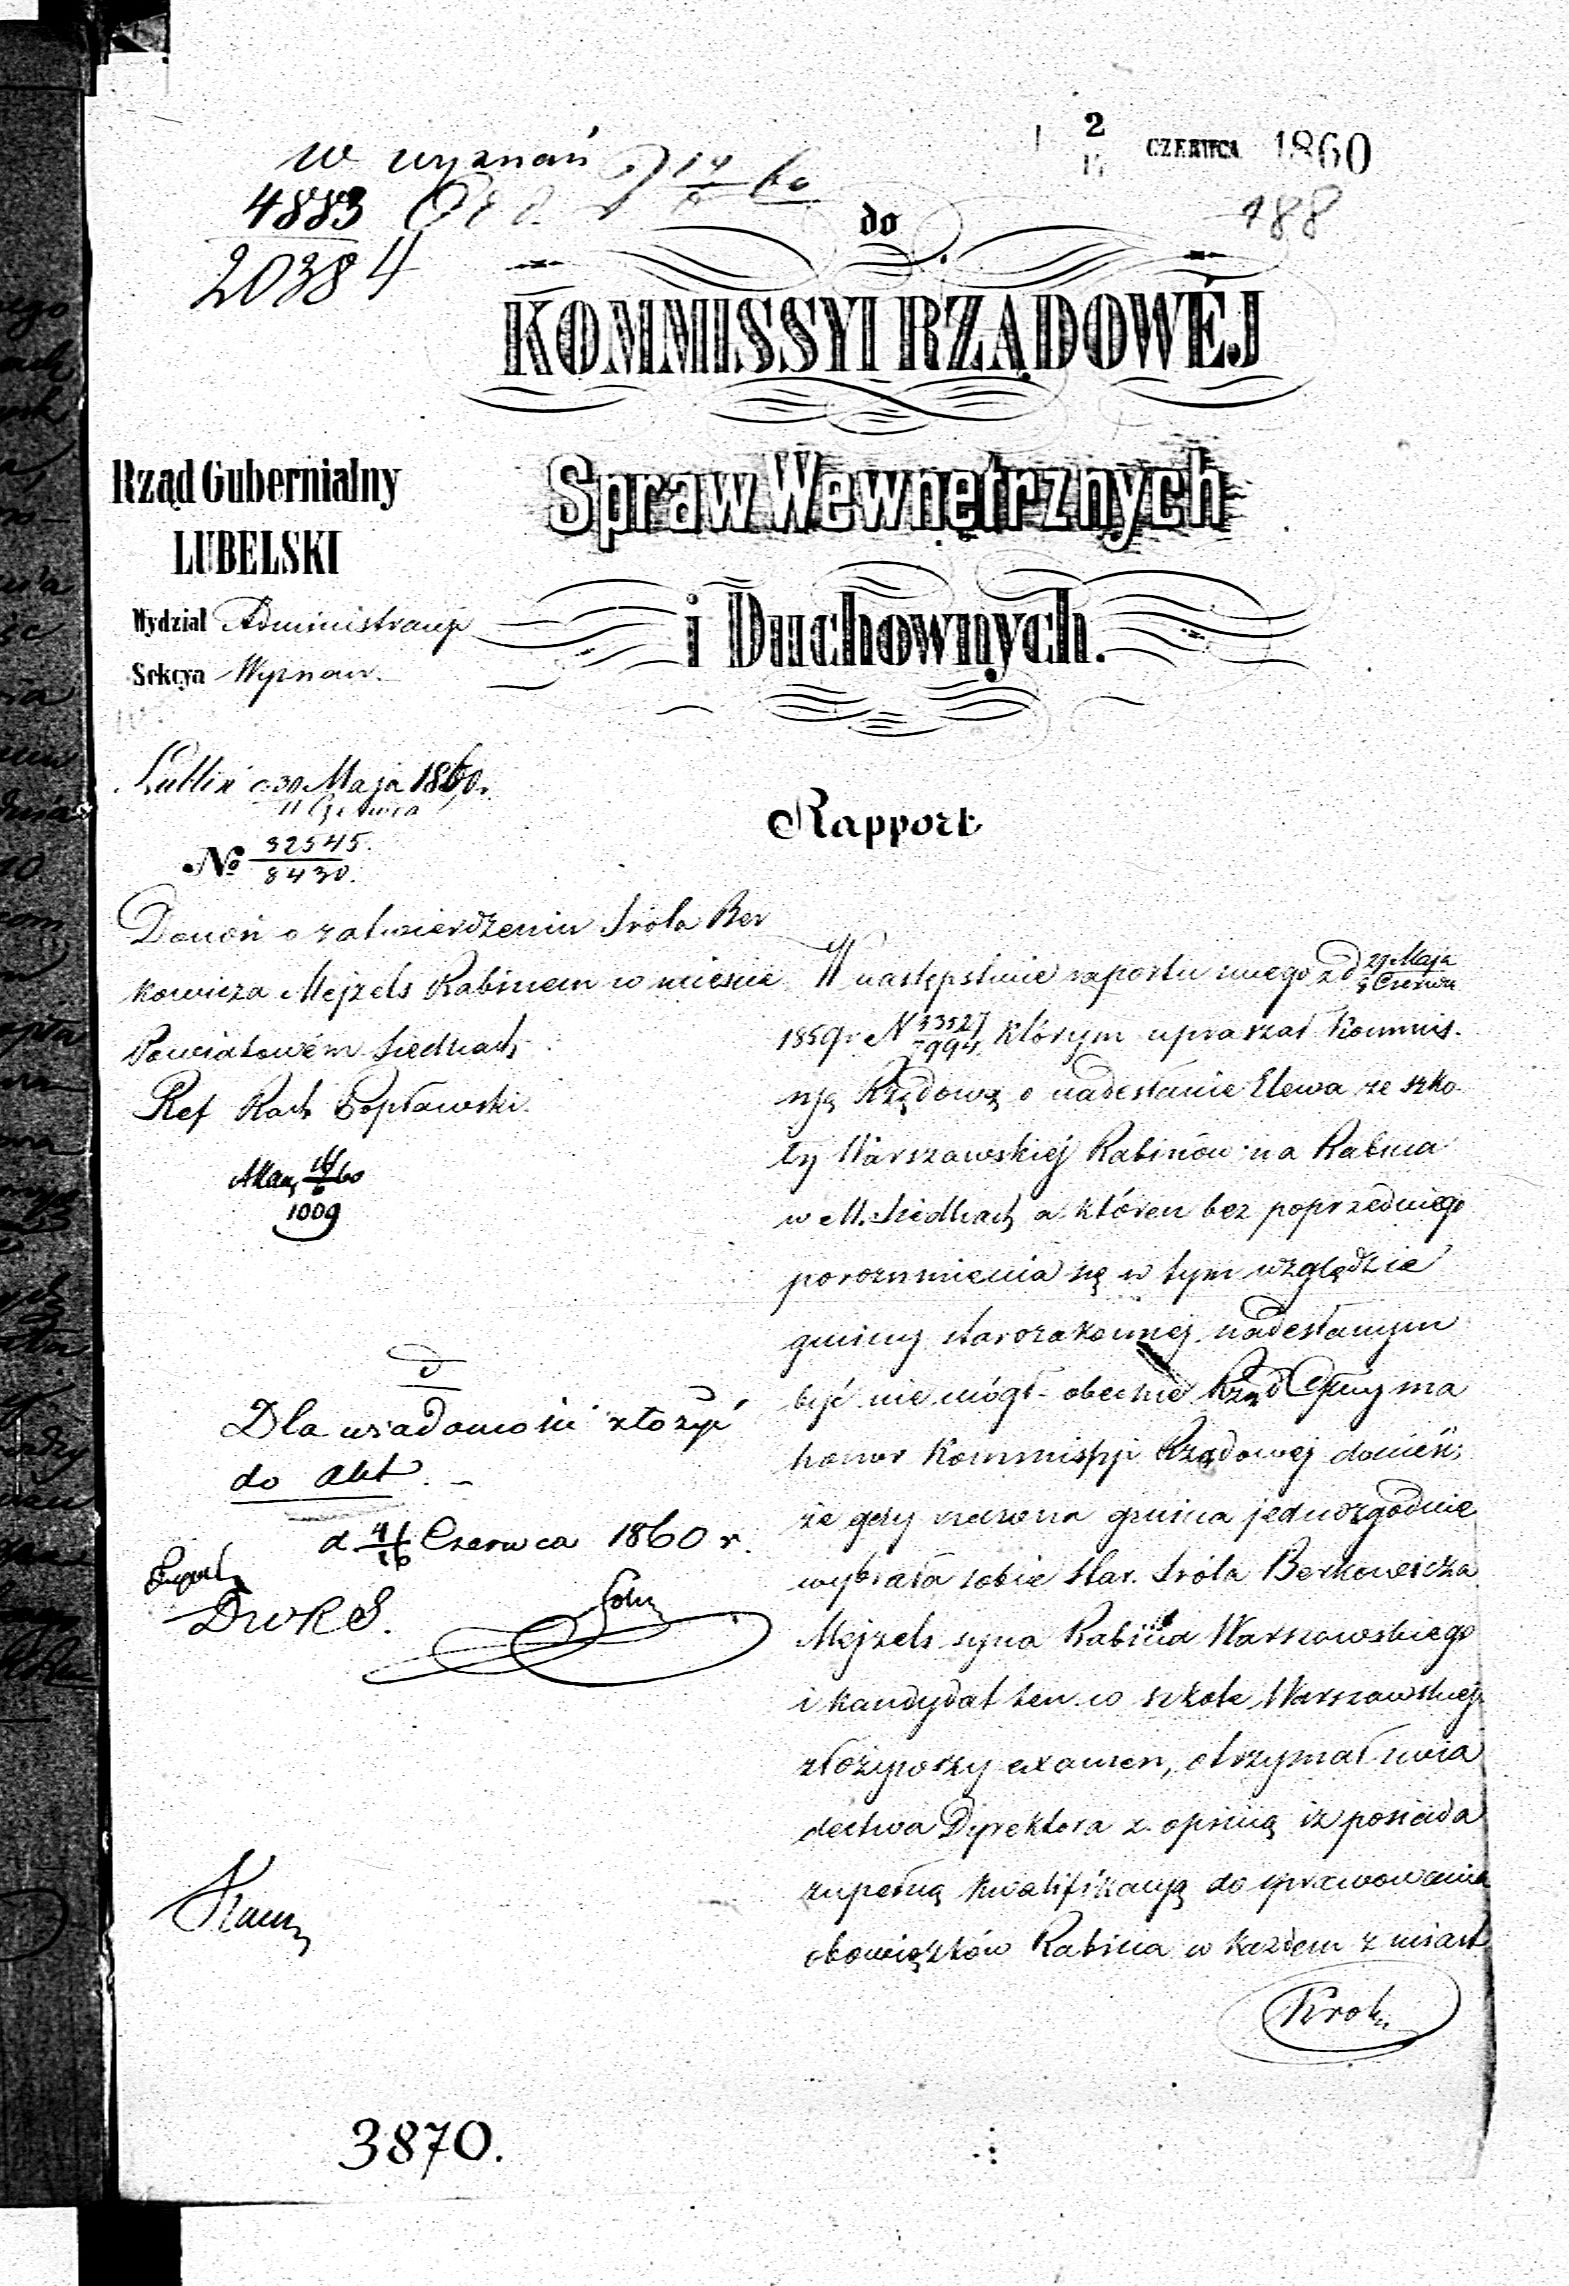 2 CZERWCA 1860
w wyznań
4883
20384
188
do
KOMMISSYI RZĄDOWÉJ
Spraw Wewnętrznych
i Duchownych.
Rząd Gubernialny
LUBELSKI
Wydział Administracyj
Sekcya Wyznań.
Lublin d. 30 Maja 1860 r.
11 Czerwca
№ 32545.
8430.
Rapport
Donosi o zatwierdzeniu Srola Ber
kowicza Mejzels Rabinem w mieście
Powiatowém Siedlcach
Ref Rach Popławski.
1009
W następstwie raportu swego z d 29 Maja
Czerwca
1859 r N 33527
7994 którym upraszał Kommis.
syą Rządową o nadesłanie Elewa ze szko
ły Warszawskiej Rabinów na Rabina
w M. Siedlcach a któren bez poprzedniego
porozumienia się w tym względzie
gminy starozakonnej nadesłanym
być nie mógł - obecnie Rząd Gbny ma
honor Kommissyi Rządowej donieść,
że gdy rzeczona gmina jednozgodnie
wybrała sobie Star. Srola Berkowicza
Mejzels syna Rabina Warszawskiego
i kandydat ten w szkole Warszawskiej
złożywszy examen, otrzymał świa
dectwa Dyrektora z opinią iż posiada
zupełną kwalifikacyą do sprawowania
obowiązków Rabina w każdem z miast
Dla wiadomości złożyć
do akt. -
d 4/16 Czerwca 1860 r.
DWRS.
3870.